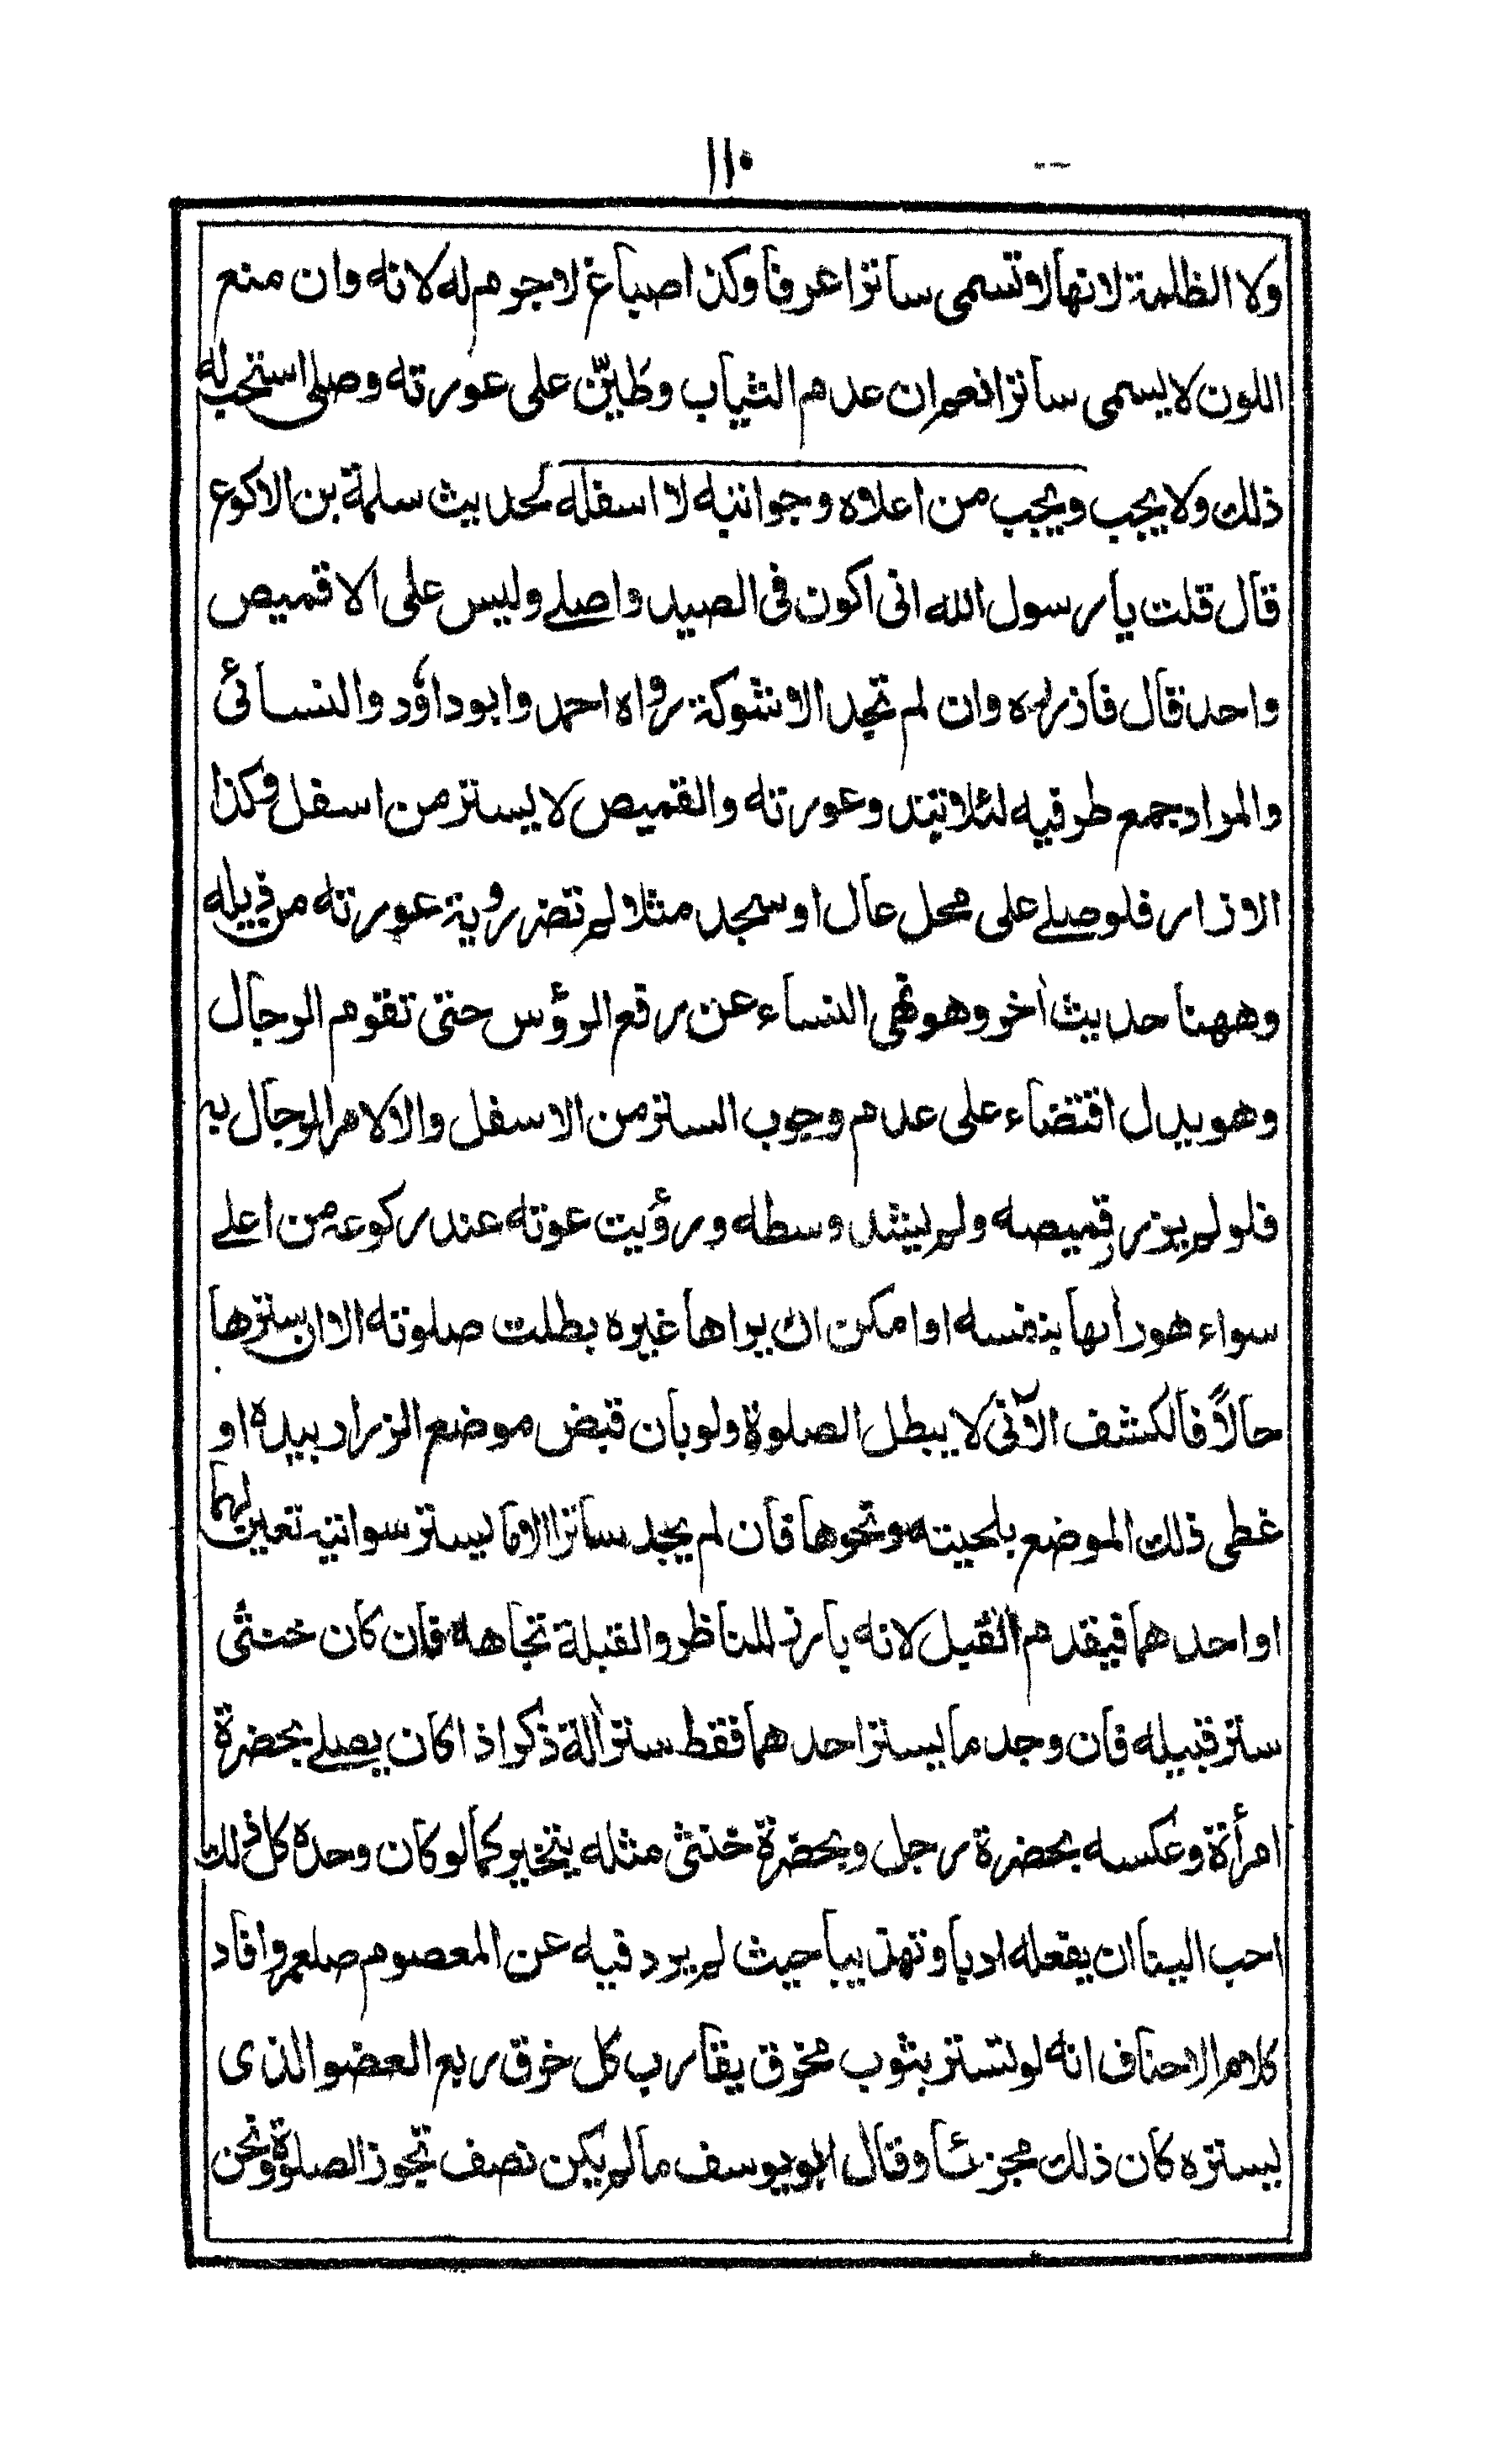 ١١٠
ولا الظلمة لانها لا تسمى ساترا عرفا وكذا صباغ لا جرم له لانه وان منع
اللون لا يسمى ساترا نعم ان عدم الثياب وطيّن على عورته وصلى استحب له
ذلك ولا يجب ويجب من اعلاه وجوانبه لا اسفله لحديث سلمة بن الاكوع
قال قلت يا رسول الله انى اكون فى الصيد واصلے وليس على الا قميص
واحد قال فاذرره وان لم تجد الا شوكة رواه احمد وابوداؤد والنسائى
والمراد جمع طرفيه لئلا تبتد وعورته والقميص لا يستر من اسفل فكذا
الازار فلو صلے على محل عال او سجد مثلا لم تضر روية عورته من ذيله
وههنا حديث اٰخر وهو نهى النساء عن رفع الرؤس حتى تقوم الرجال
وهو يدل اقتضاء على عدم وجوب الستر من الاسفل والا لامر الرجال به
فلو لم يزر قميصه ولم يشد وسطه ورؤيت عوته عند ركوعه من اعلے
سواء هو رأىها بنفسه او امكن ان يراها غيره بطلت صلوته الا ان يسترها
حالاً فالكشف الآتى لا يبطل الصلوة ولو بان قبض موضع الزرار بيده او
غطى ذلك الموضع بلحيته ونحوها فان لم يجد ساترا الا ما يستر سواتيه تعين لهما
او احدهما فيقدم القبل لانه بارز للناظر والقبلة تجاهه فان كان خنثى
ستر قبيله فان وجد ما يستر احدهما فقط ستر اٰلة ذكر اذا كان يصلے بحضرة
امرأة وعكسه بحضرة رجل وبحضرة خنثى مثله يتخير كما لو كان وحده كل ذلك
احب الينا ان يفعله ادبا وتهذيبا حيث لم يرد فيه عن المعصوم صلعم وافاد
كلام الاحناف انه لو تستر بثوب مخرق يقارب كل خرق ربع العضو الذى
يستره كان ذلك مجزئا وقال ابو يوسف ما لم يكن نصف تجوز الصلوة ونحن